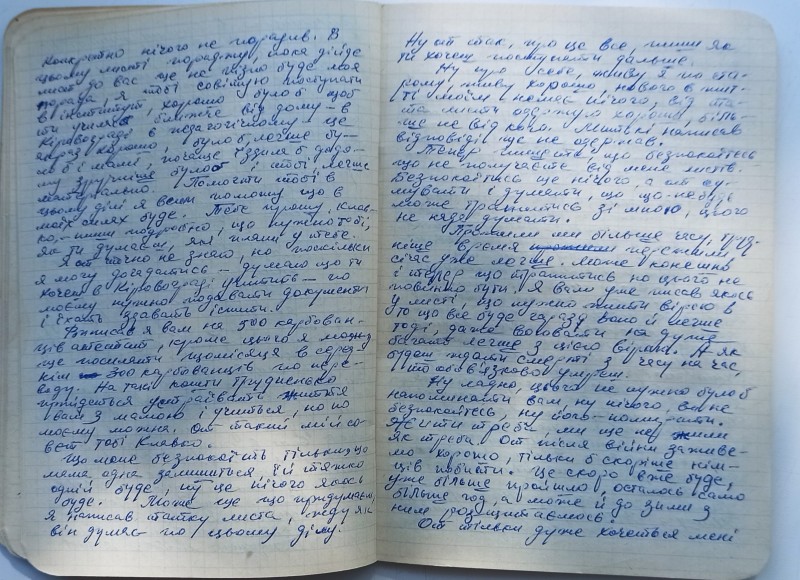 Конкретно нічого не порадив. В
цьому листі пораджу, поки дійде
лист до вас ще не пізно буде моя
порада. Я тобі совітую поступати
в інститут, хорошо було б щоб
ти училась ближче від дому – в
Кіровограді в педагогічному це
якраз хорошо, було б легше бу-
ло б і мамі, почаще їздила б додо-
му, було б і тобі легше
матеріально. Помогти тобі в
цьому ділі я всим поможу що в
моїх силах буде. Тебе прошу, Клав-
ко, – пиши подробно, що нужно тобі,
як ти думаєш, які плани у тебе.
Я от точно не знаю, но поскільки
я можу догадатись – думаю що ти
хочеш в Кіровограді учитись – по
моєму нужно подавати документи
і їхать здавать іспити.
Вислав я вам на 500 карбован-
ців атестат, кроме цього я можу
ще посилати щомісяця в серед-
нім 300 карбованців по пере-
воду. На такі кошти трудненько
прийдеться устраївати життя
вам з мамою і учиться, но по
моєму можна. От такий мій со-
вєт тобі Клавко.
Що мене безпокоїть тільки, що
мама одна залишиться, їй тяжко
одній буде, ну це нічого якось
буде. Може ще що придумаєм,
я написав татку листа, жду як
він думає по цьому ділу.
Ну от так, про це все, пиши як
ти хочеш поступати дальше.
Ну про себе, живу я по ста-
рому, живу хорошо, нового в жит-
ті моїм немає нічого, від та-
та листи одержую хорошо, біль-
ше не від кого. Мишкі написав
відповіді ще не одержав.
Тепер пишете що безпокоїтесь
що не получаєте від мене листів.
Безпокоїтись ще нічого, а от су-
мувати і думати, що що-небудь
може трапитись зі мною, цього
не нада думати.
Прожили ми більше часу, труд-
ніше время пережили
січас уже легше. Може конешно
і тепер що трапитись но цього не
повинно бути. Я вам уже писав якось
у листі, що нужно жити вірою в
то що все буде гаразд воно й легше
тоді, даже воювати на дуже
багато легше з цією вірою. А як
будеш ждати смерті з часу на час,
то обов'язково умреш.
Ну ладно, цього не нужно було б
напоминати вам, ну нічого, ви не
безпокойтесь, ну
Жити треба, ми ще не жили
як треба. От після війни зажиєе-
мо хорошо, тільки б скоріше нім-
ців побити. Це скоро вже буде,
уже більше пройшло, осталось само
більше год, а може й до зими з
ним розщитаємось.
От тільки дуже хочеться мені